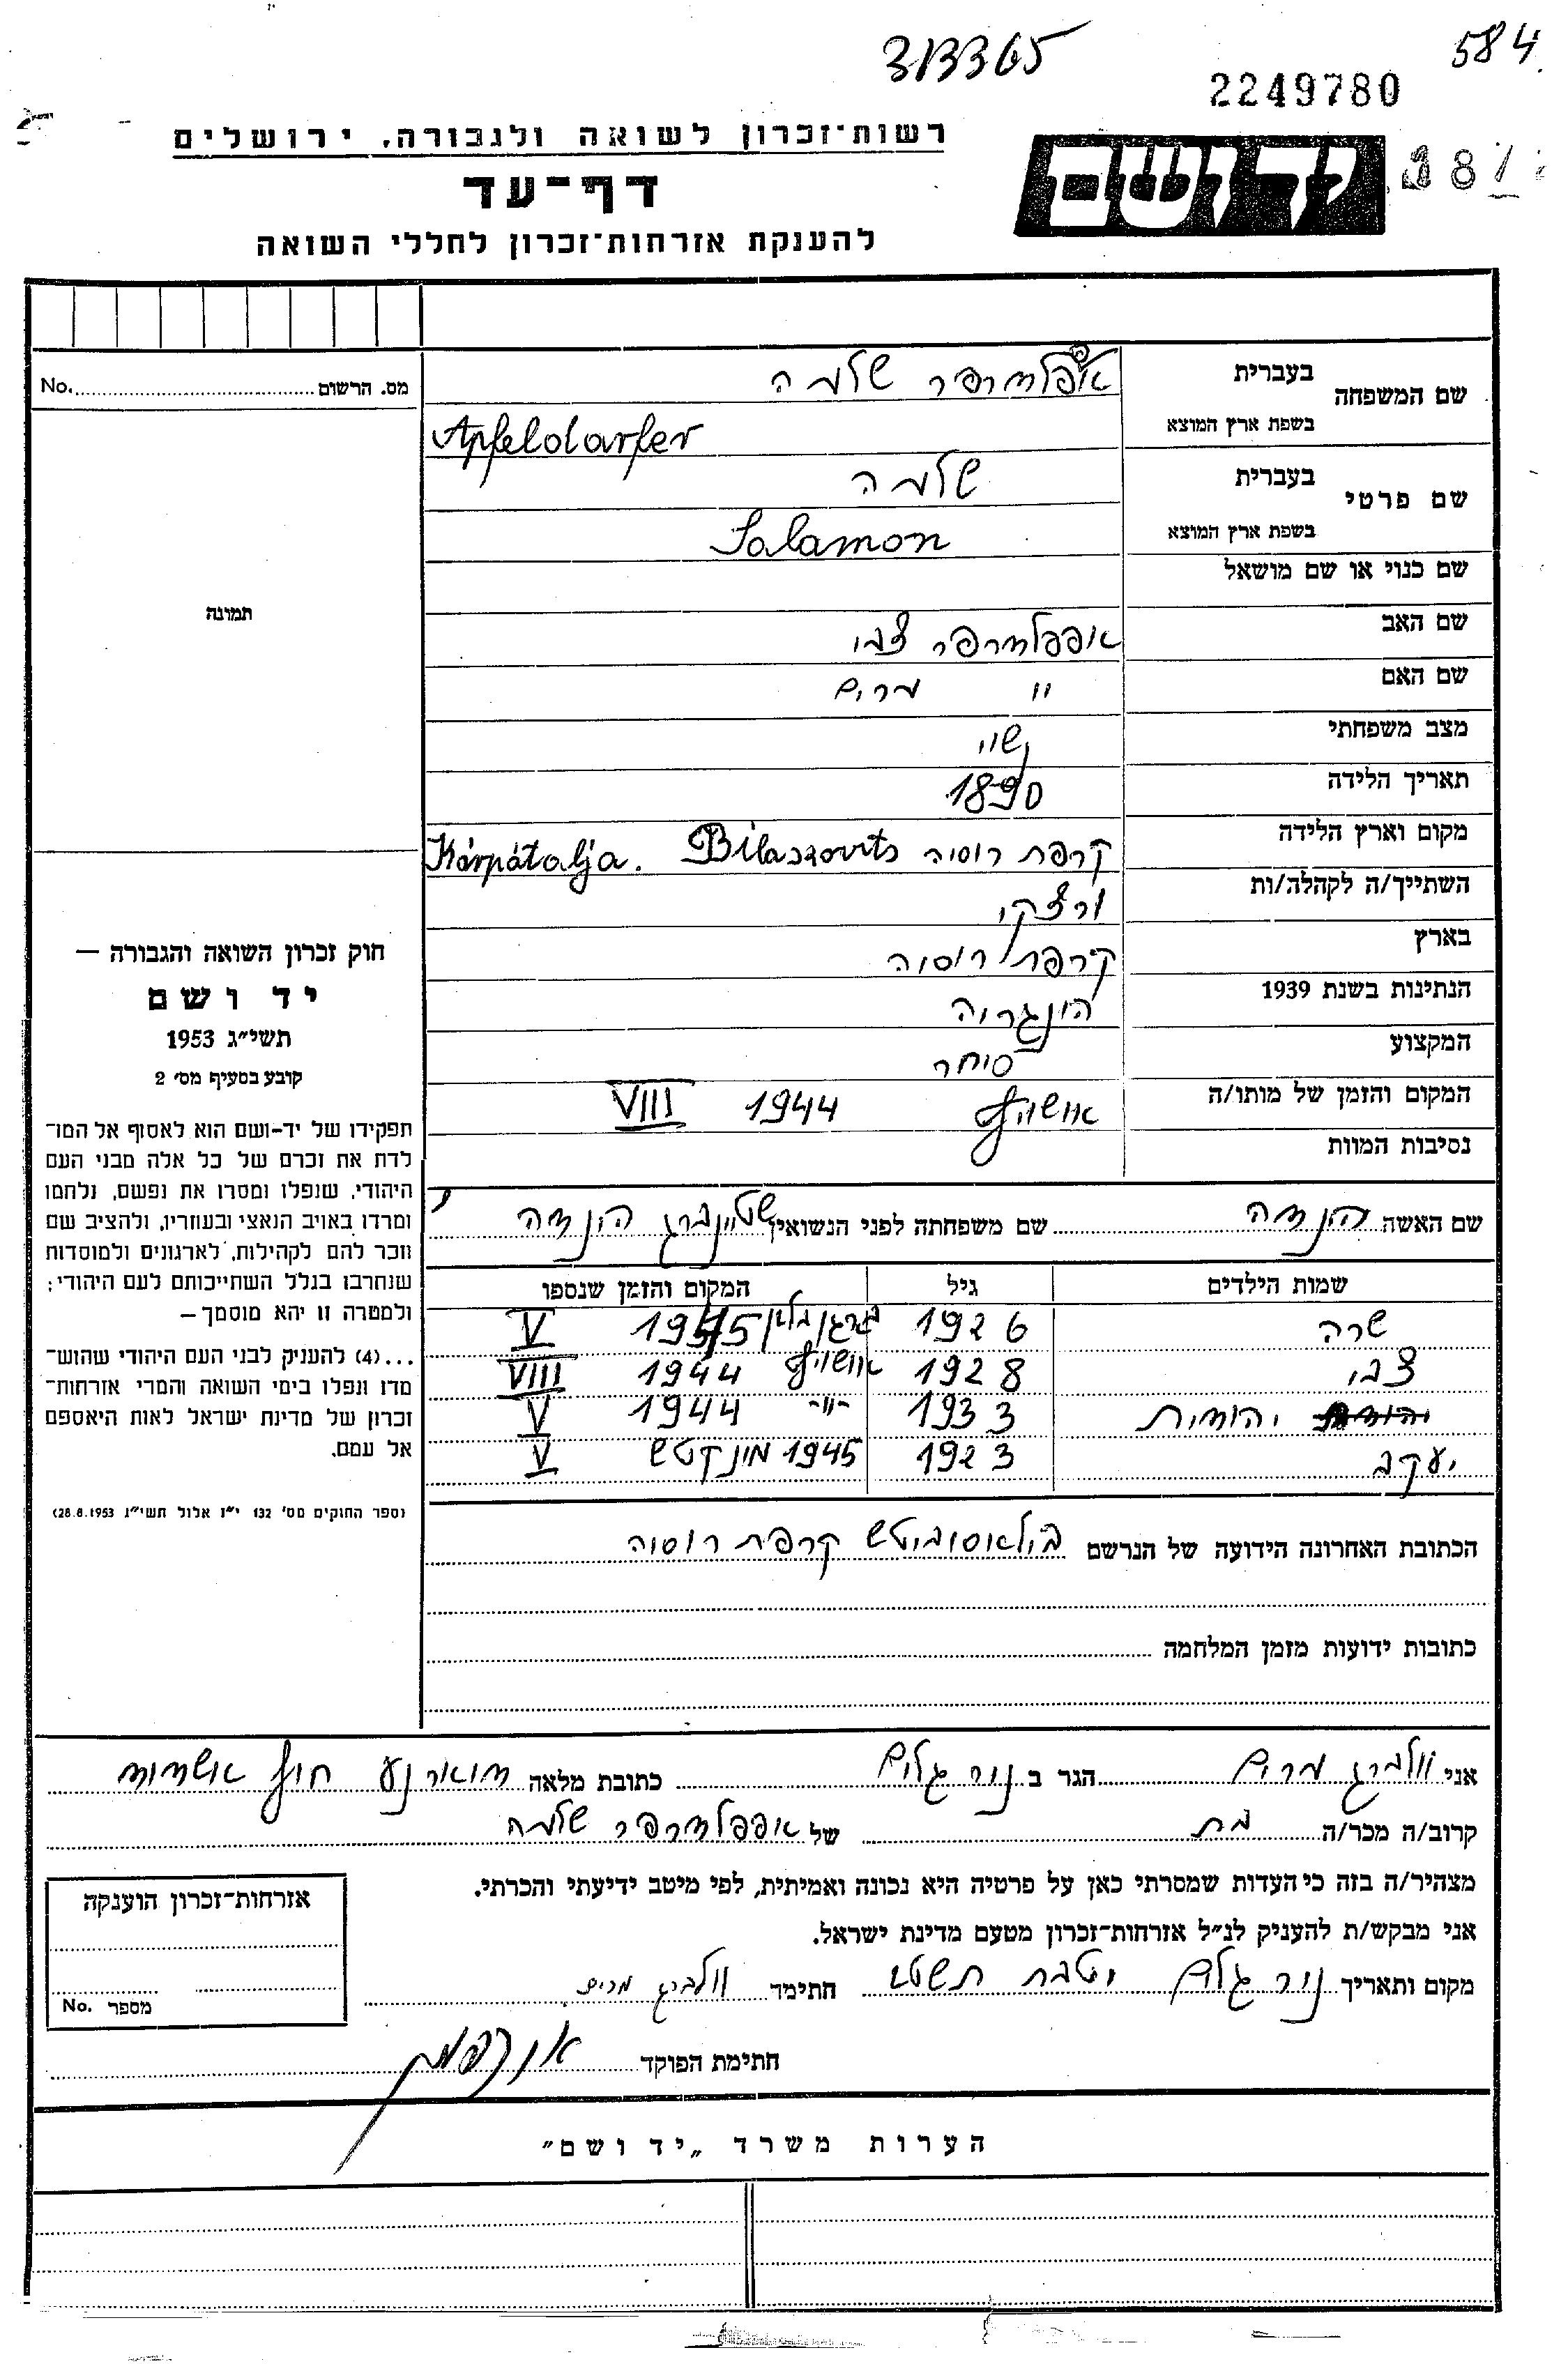 313365
584
2249780
רשות־זכרון לשואה ולגבורה, ירושלים
דף־עד
להענקת אזרחות־זכרון לחללי השואה
מס. הרשום No.
שם המשפחה בעברית אפלדרפר שלמה
בשפת ארץ המוצא Apfeldarfer
שם פרטי בעברית שלמה
בשפת ארץ המוצא Salamon
שם כנוי או שם מושאל
שם האב אפפלדרפר צבי
שם האם " מרים
מצב משפחתי נשוי
תאריך הלידה 1890
מקום וארץ הלידה קרפת רוסיה Bilaszovits Kárpátalja.
השתייך/ה לקהלה/ות ורצקי
בארץ קרפת רוסיה
הנתינות בשנת 1939 הונגריה
המקצוע סוחר
המקום והזמן של מותו/ה אושויץ 1944 VIII
נסיבות המוות
תמונה
חוק זכרון השואה והגבורה —
יד ושם
תשי״ג 1953
קובע בסעיף מס׳ 2
תפקידו של יד-ושם הוא לאסוף אל המו־
לדת את זכרם של כל אלה מבני העם
היהודי, שנפלו ומסרו את נפשם, נלחמו
ומרדו באויב הנאצי ובעוזריו, ולהציב שם
וזכר להם לקהילות, לארגונים ולמוסדות
שנחרבו בגלל השתייכותם לעם היהודי;
ולמטרה זו יהא מוסמך —
...(4) להעניק לבני העם היהודי שהוש־
מדו ונפלו בימי השואה והמרי אזרחות־
זכרון של מדינת ישראל לאות היאספם
אל עמם.
(ספר החוקים מס׳ 132 י״ז אלול תשי״ג 28.8.1953)
שם האשה הנדה שם משפחתה לפני הנשואין שטיינברג הינדה
שמות הילדים גיל המקום והזמן שנספו
שרה 1926 ברגן בלזן 1945 V
צבי 1928 אושויץ 1944 VIII
יהודית 1933 -"- 1944 V
יעקב 1923 1945 מונקטש V
הכתובת האחרונה הידועה של הנרשם בילאסוביטש קרפת רוסיה
כתובות ידועות מזמן המלחמה
אני וולברג מרים הגר ב נוה גלים כתובת מלאה דואר נע חוף אשדוד
קרוב/ה מכר/ה בת של אפפלדרפר שלמה
מצהיר/ה בזה כי העדות שמסרתי כאן על פרטיה היא נכונה ואמיתית, לפי מיטב ידיעתי והכרתי.
אני מבקש/ת להעניק לנ״ל אזרחות־זכרון מטעם מדינת ישראל.
מקום ותאריך נוה גלים טבת תשט חתימה וולברג מרים
חתימת הפוקד
אזרחות־זכרון הוענקה
מספר No.
הערות משרד „יד ושם״